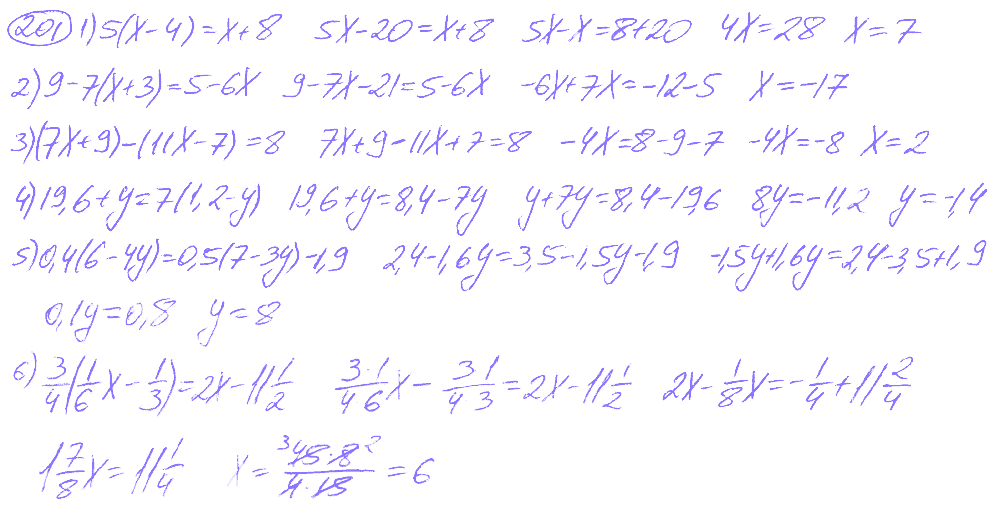 201 1) 5(x-4)=x+8 5x-20=x+8 5x-x=8+20 4x=28 x=7
2) 9-7(x+3)=5-6x 9-7x-21=5-6x -6x+7x=-12-5 x=-17
3) (7x+9)-(11x-7)=8 7x+9-11x+7=8 -4x=8-9-7 -4x=-8 x=2
4) 19,6+y=7(1,2-y) 19,6+y=8,4-7y y+7y=8,4-19,6 8y=-11,2 y=-1,4
5) 0,4(6-4y)=0,5(7-3y)-1,9 2,4-1,6y=3,5-1,5y-1,9 -1,5y+1,6y=2,4-3,5+1,9
0,1y=0,8 y=8
6) 3/4(1/6x-1/3)=2x-11 1/2 3·1/4·6x-3·1/4·3=2x-11 1/2 2x-1/8x=-1/4+11 2/4
1 7/8x=11 1/4 x=3 45·8 2/4·15=6